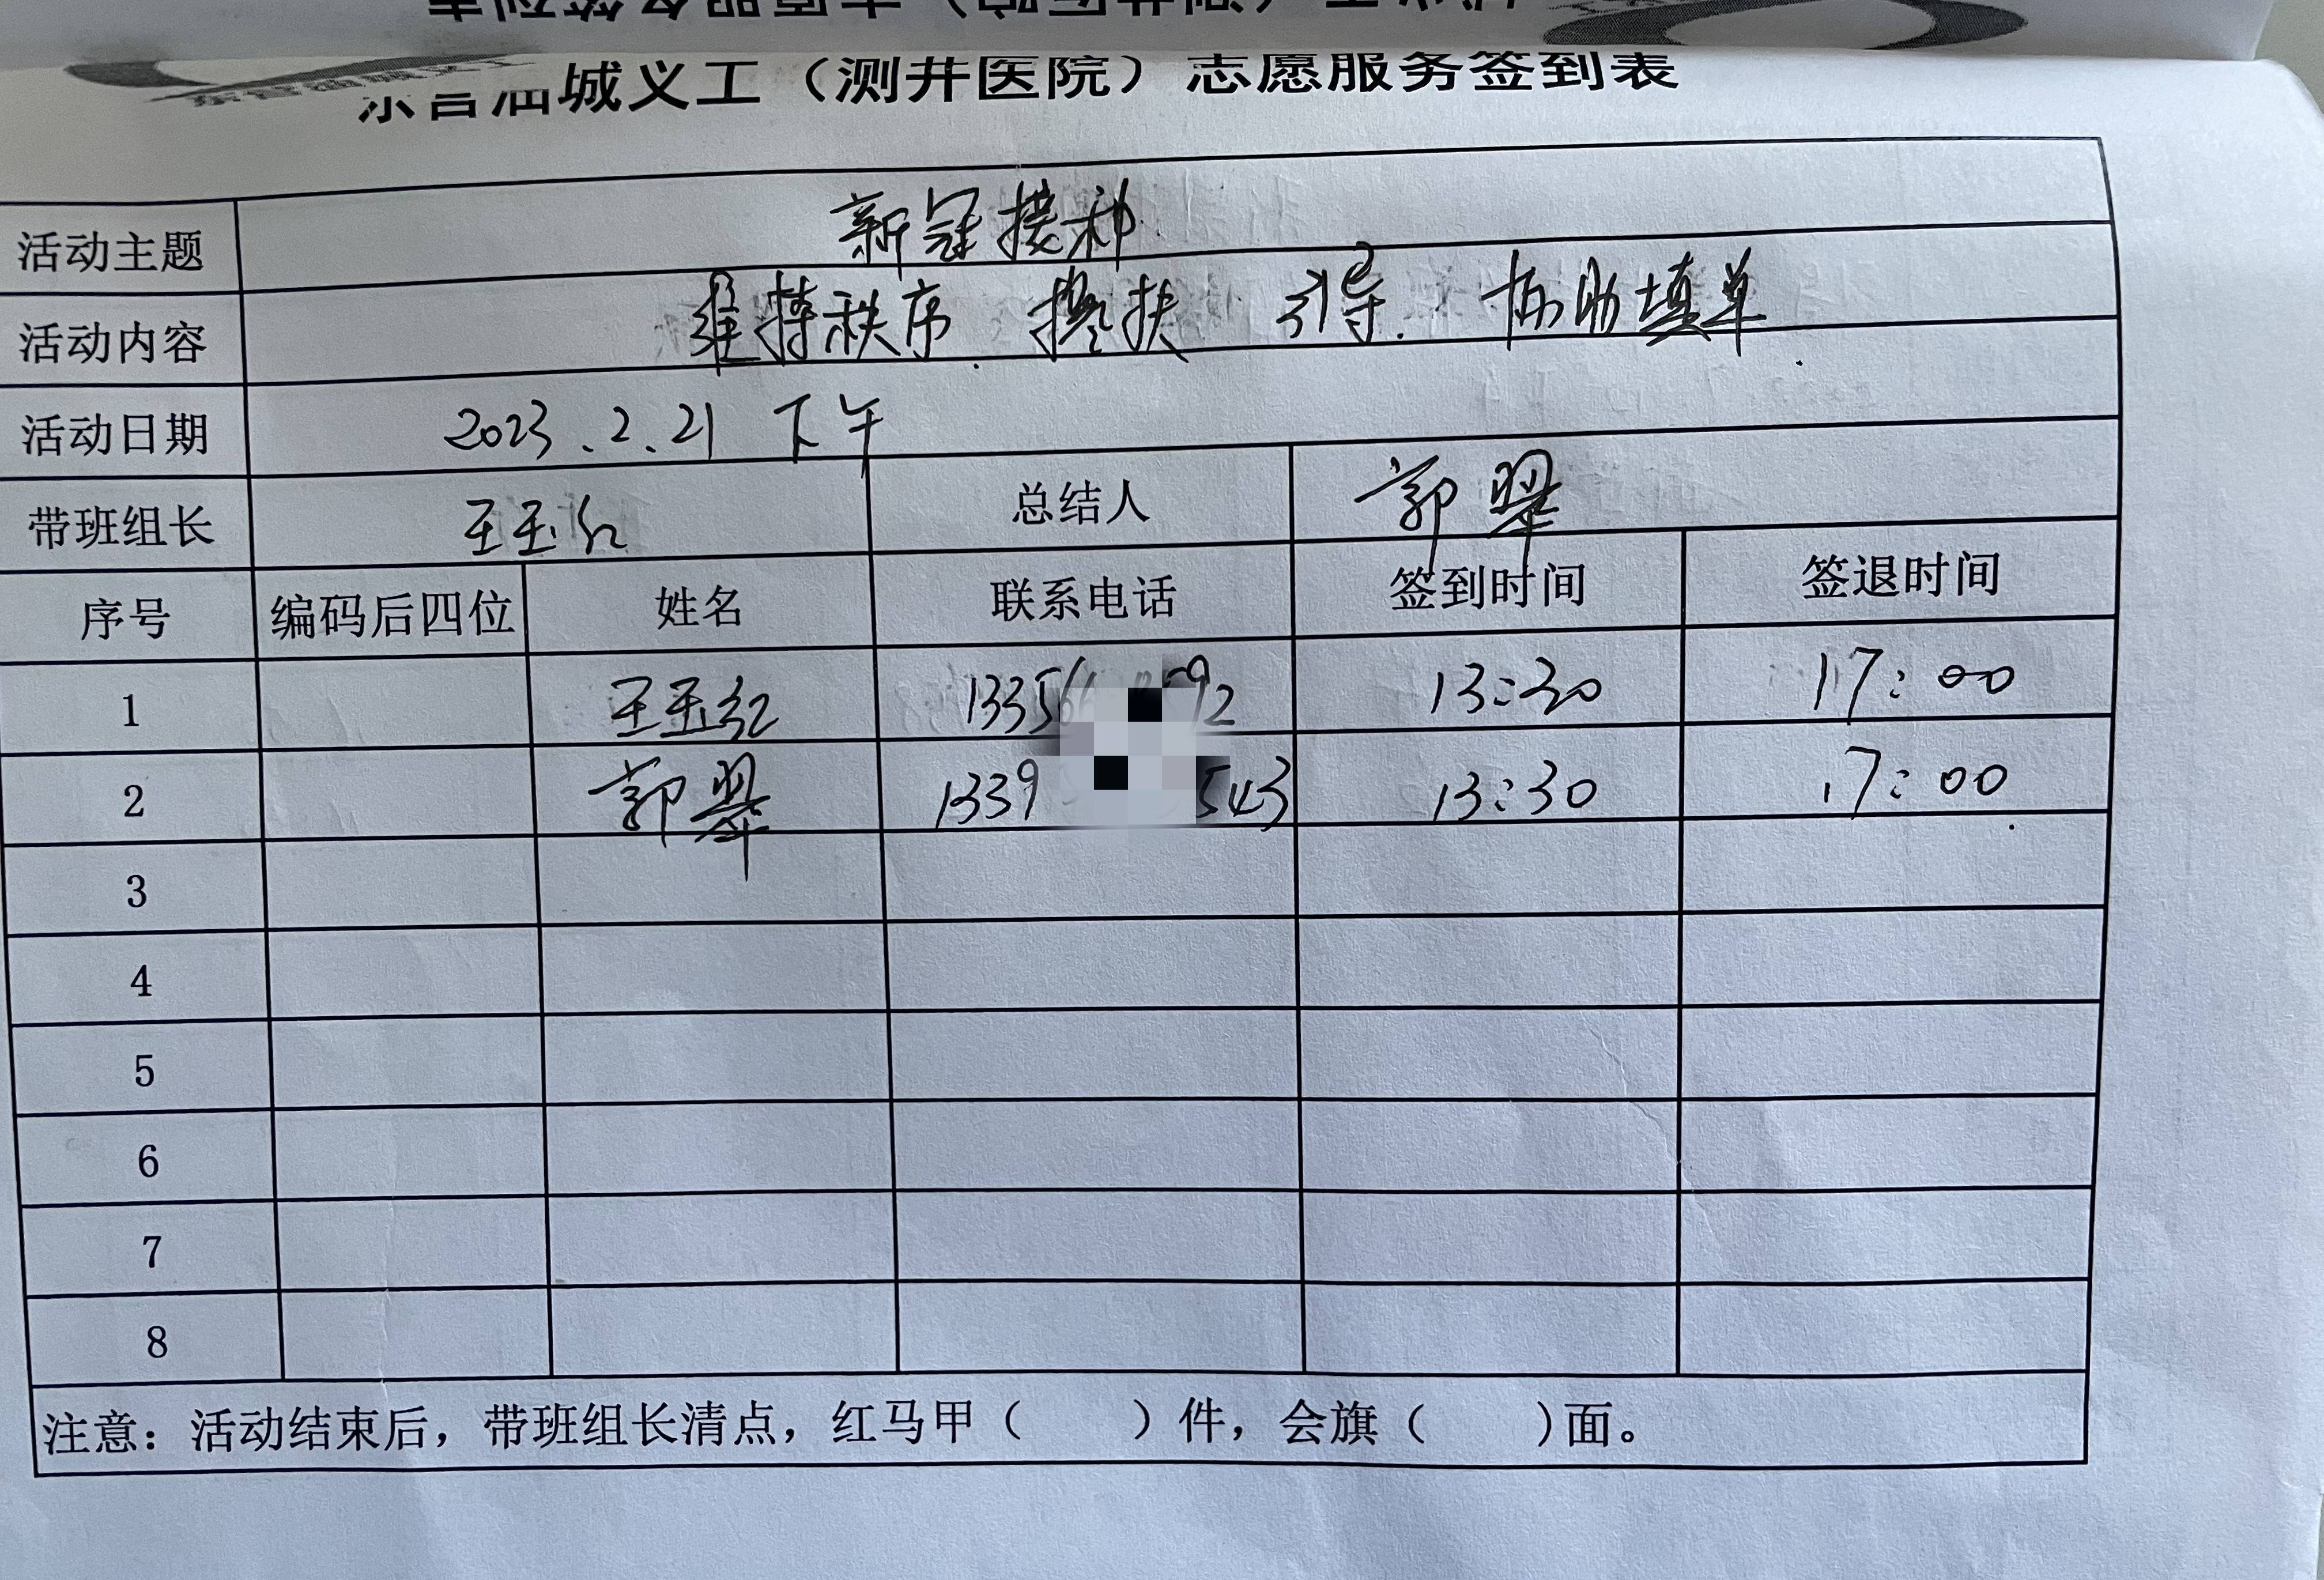 东营油城义工（测井医院）志愿服务签到表
活动主题 新冠接种
活动内容 维持秩序. 搀扶 引导. 协助填单.
活动日期 2023.2.21 下午
带班组长 王玉红 总结人 郭翠
序号 编码后四位 姓名 联系电话 签到时间 签退时间
1 王玉红 13:30 17:00
2 郭翠 13:30 17:00
3
4
5
6
7
8
注意：活动结束后，带班组长清点，红马甲（ ）件，会旗（ ）面。